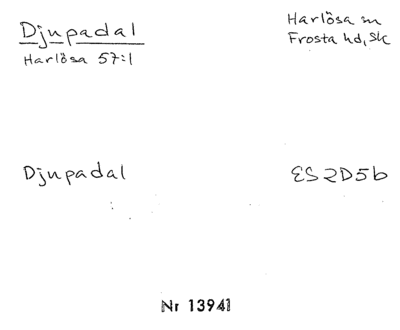 Djupadal
Harlösa sn
Frosta hd, Sk
Harlösa 57:1
Djupadal
ES 2D5b
Nr 13941